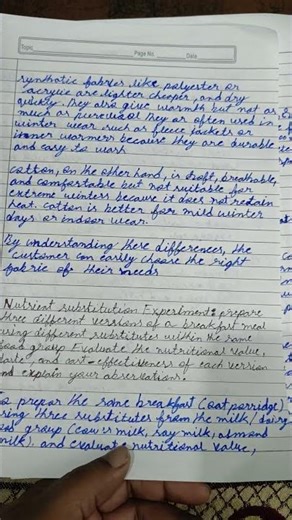 Topic
Page No.
Date
synthetic fabrics like polyester or
acrylic are lighter cheaper, and dry
quickly. They also give warmth but not as
much as pure wool They are often used in
winter wear such as fleece jackets or
inner warmers because they are durable
and easy to wash
cotton, on the other hand, is soft, breathable,
and comfortable but not suitable for
extreme winters because it does not retain
heat. cotton is better for mild winter
days or indoor wear.
By understanding these differences, the
customer can easily choose the right
fabric of their needs
Nutrient substitution Experiment: prepare
three different versions of a breakfast meal
using different substitutes within the same
food group. Evaluate the nutritional value,
taste and cost-effectiveness of each version
and explain your observations.
To prepar the same breakfast (oat porridge)
using three substitutes from the milk/dairy
group (cow's milk, soy milk, almond
milk). and evaluate nutritional value,